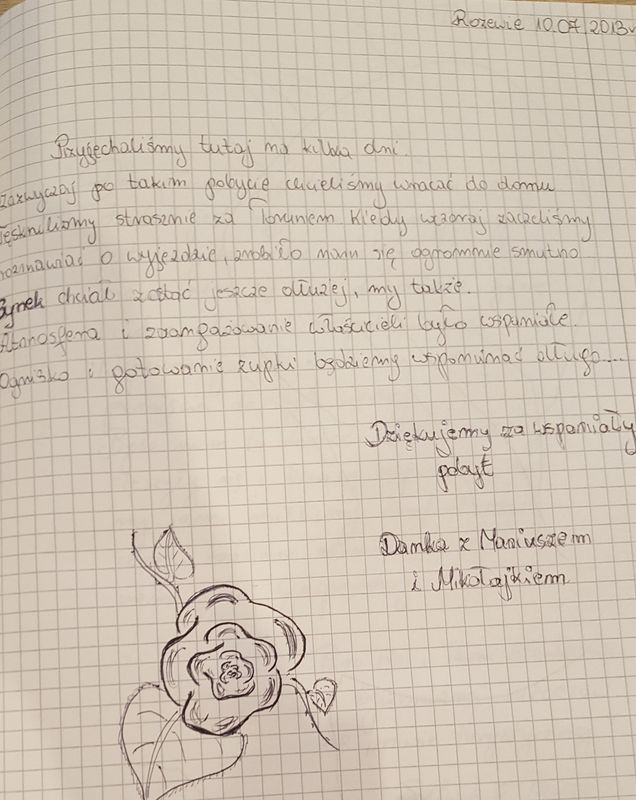 Rozewie 10.07.2013r
Przyjechaliśmy tutaj na kilka dni.
zazwyczaj po takim pobycie chcieliśmy wracać do domu
tęskniliśmy strasznie za Toruniem. Kiedy wczoraj zaczeliśmy
rozmawiać o wyjeździe, zrobiło mam się ogromnie smutno
Synek chciał zostać jeszcze dłużej, my także.
Atmosfera i zaangażowanie właścicieli było wspaniałe.
Ognisko i gotowanie zupki będziemy wspominać długo...
Dziękujemy za wspaniały
pobyt
Danka z Mariuszem
i Mikołajkiem